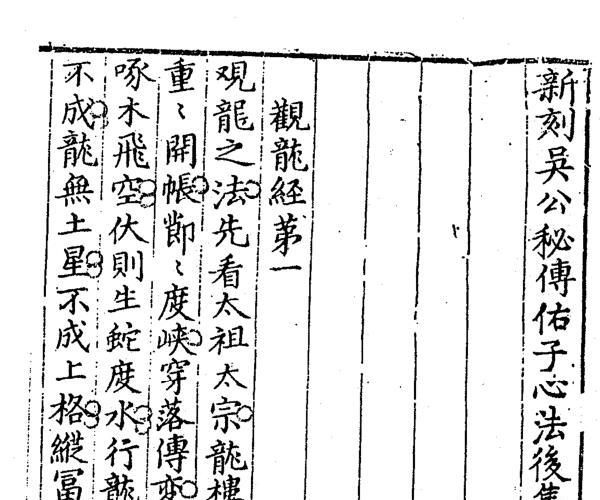 新刻吳公秘傳佑子心法後集
觀龍經第一
观龍之法先看太祖太宗龍樓
重〻開帳節〻度峽穿落傳変
啄木飛空伏則生蛇度水行龍
不成龍無土星不成上格縱冨